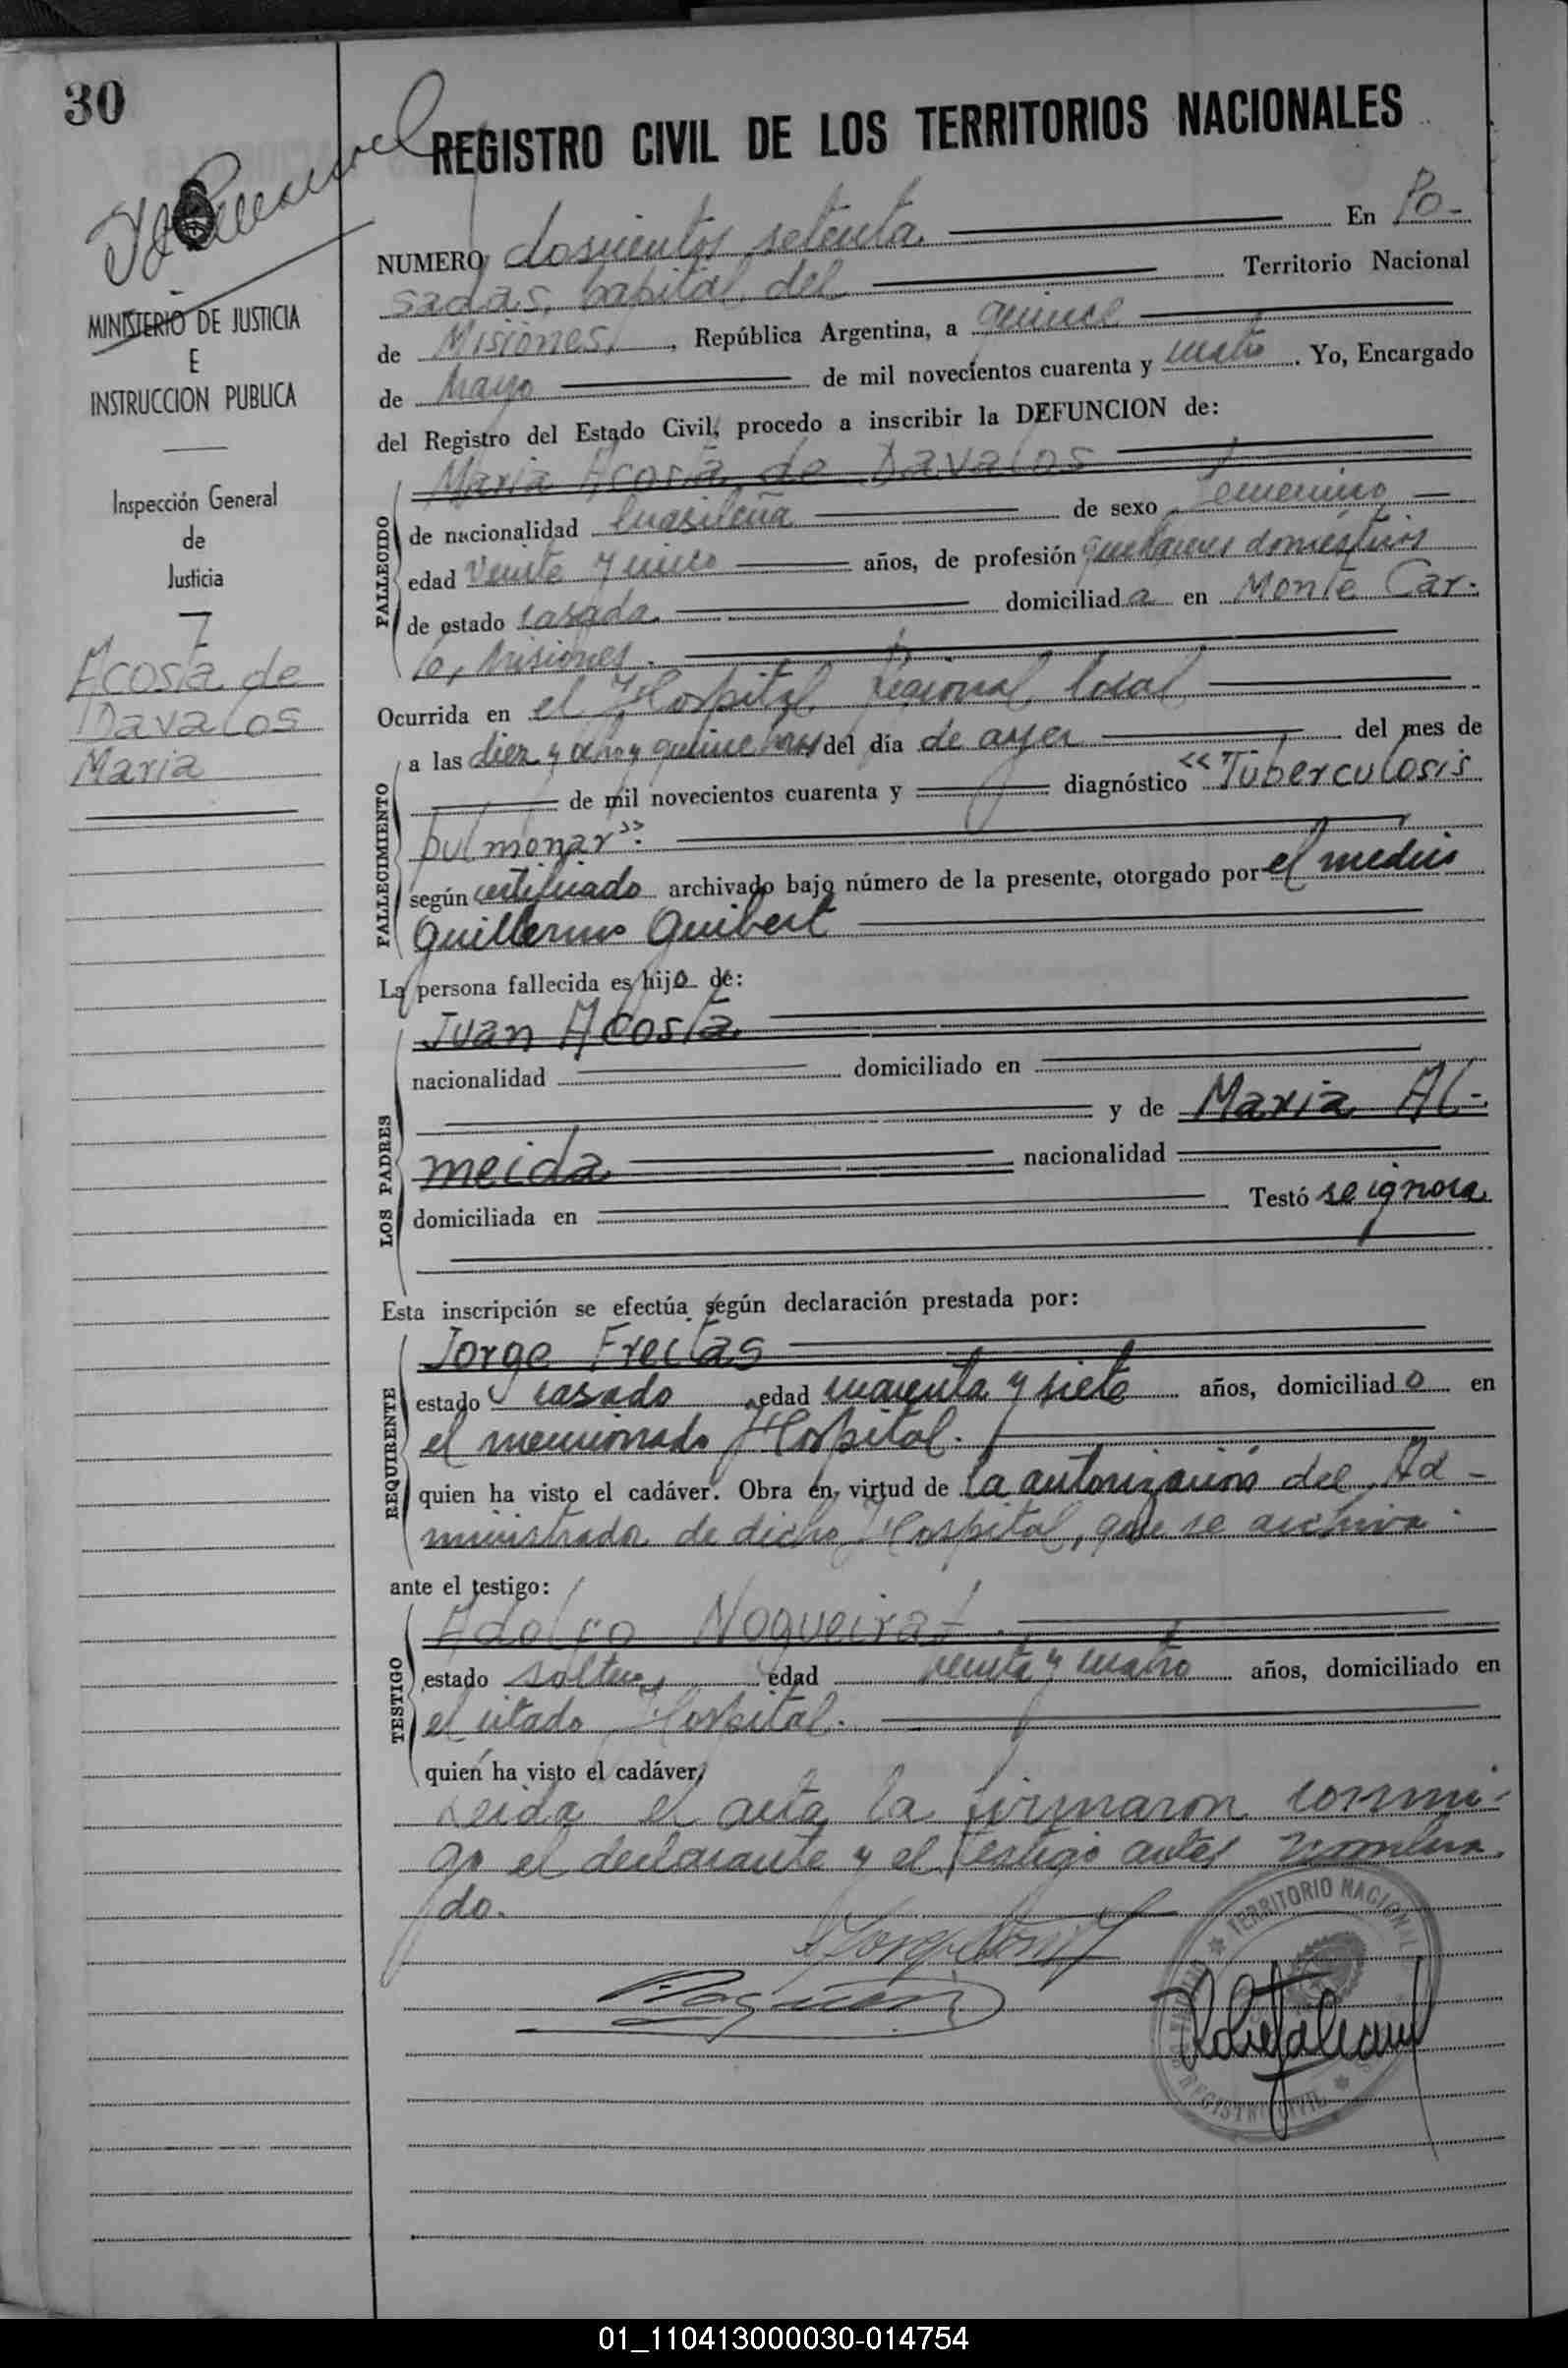 30
REGISTRO CIVIL DE LOS TERRITORIOS NACIONALES
MINISTERIO DE JUSTICIA
E
INSTRUCCION PUBLICA
Inspección General
de
Justicia
Acosta de
Davalos
Maria
NUMERO doscientos setenta En Po-
sadas, Capital del Territorio Nacional
de Misiones, República Argentina, a quince
de Mayo de mil novecientos cuarenta y cuatro. Yo, Encargado
del Registro del Estado Civil, procedo a inscribir la DEFUNCION de:
Maria Acosta de Davalos
FALLECIDO
de nacionalidad brasileña de sexo femenino
edad veinte y cinco años, de profesión quehaceres domésticos
de estado casada. domiciliada en Monte Car-
lo, Misiones.
Ocurrida en el Hospital Regional local
a las diez y ocho y quince hras del día de ayer del mes de
de mil novecientos cuarenta y diagnóstico "Tuberculosis
FALLECIMIENTO
pulmonar".
según certificado archivado bajo número de la presente, otorgado por el medico
Guillermo Guibert
La persona fallecida es hijo de:
Juan Acosta
nacionalidad domiciliado en
y de Maria Al-
LOS PADRES
meida nacionalidad
domiciliada en Testó se ignora
Esta inscripción se efectúa según declaración prestada por:
Jorge Freitas
REQUIRENTE
estado casado edad cuarenta y siete años, domiciliado en
el mencionado Hospital.
quien ha visto el cadáver. Obra en virtud de la autorización del Ad-
ministrador de dicho Hospital, que se archiva.
ante el testigo:
Adolfo Nogueira
TESTIGO
estado soltero edad veinte y cuatro años, domiciliado en
el citado Hospital.
quien ha visto el cadáver,
Leida el acta la firmaron conmi-
go el declarante y el testigo antes nombra
do.
TERRITORIO NACIONAL
REGISTRO CIVIL
01_110413000030-014754